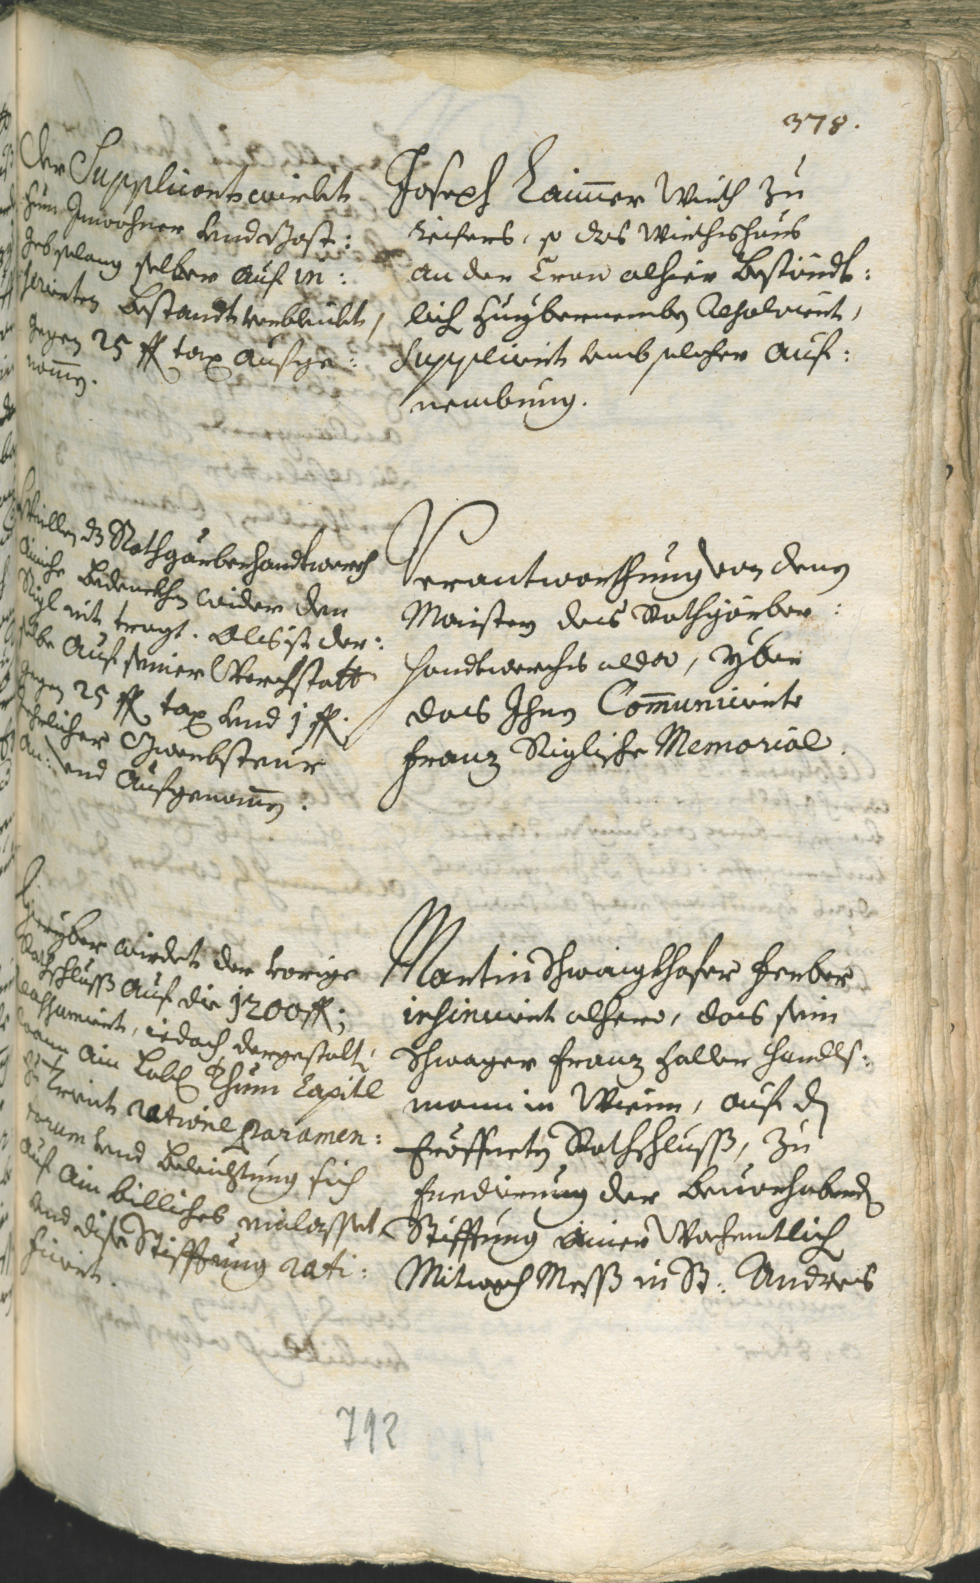 378.
Der Supplicant wirdet
zum Inwohner vnd Gast:
geb solang selber auf in:
habenten Bestandt verbleibt,
gegen 25 fl tax aufge:
nomen.
Joseph Laimer Würth zu
Reifers, so das Würthshaus
an der Cron alhier beständt:
lich zu ybernemben Resolviert,
Supplicirt umb solcher auf:
nembung.
Weillen dz Rothgärberhandtwerch
ainiche bedenckhen wider den
Rigl nit tragt. Als ist der:
selbe auf seiner Werchstatt
gegen 25 fl tax vnd 1 fl.
jehrlicher Gwerbsteur
an: vnd aufgenomen.
Verantworthung von denen
Maistern des Rothgärber:
handtwerchs alda, yber
das Ihnen Communicierte
Franz Riglische Memorial.
Hieryber wirdet der vorige
Rathschluss auf die 1200 fl;
reassumiert, iedoch dergestalt,
wann ain Lobl. Thum Capitl
zu Trient ratione Paramen:
torum vnd Beleichtung sich
auf ain billiches einlasset
vnd dise Stifftung rati:
ficiert.
Martin Schwaigkhofer Ferber
insinuirt alhero, das sein
Schwager Franz Haller Handls:
mann in Wienn, auf den
eröffneten Rathschluss, zu
Fundierung der bevorhabenden
Stifftung ainer Wochentlich
Mitwoch Mess in St: Andreis
792